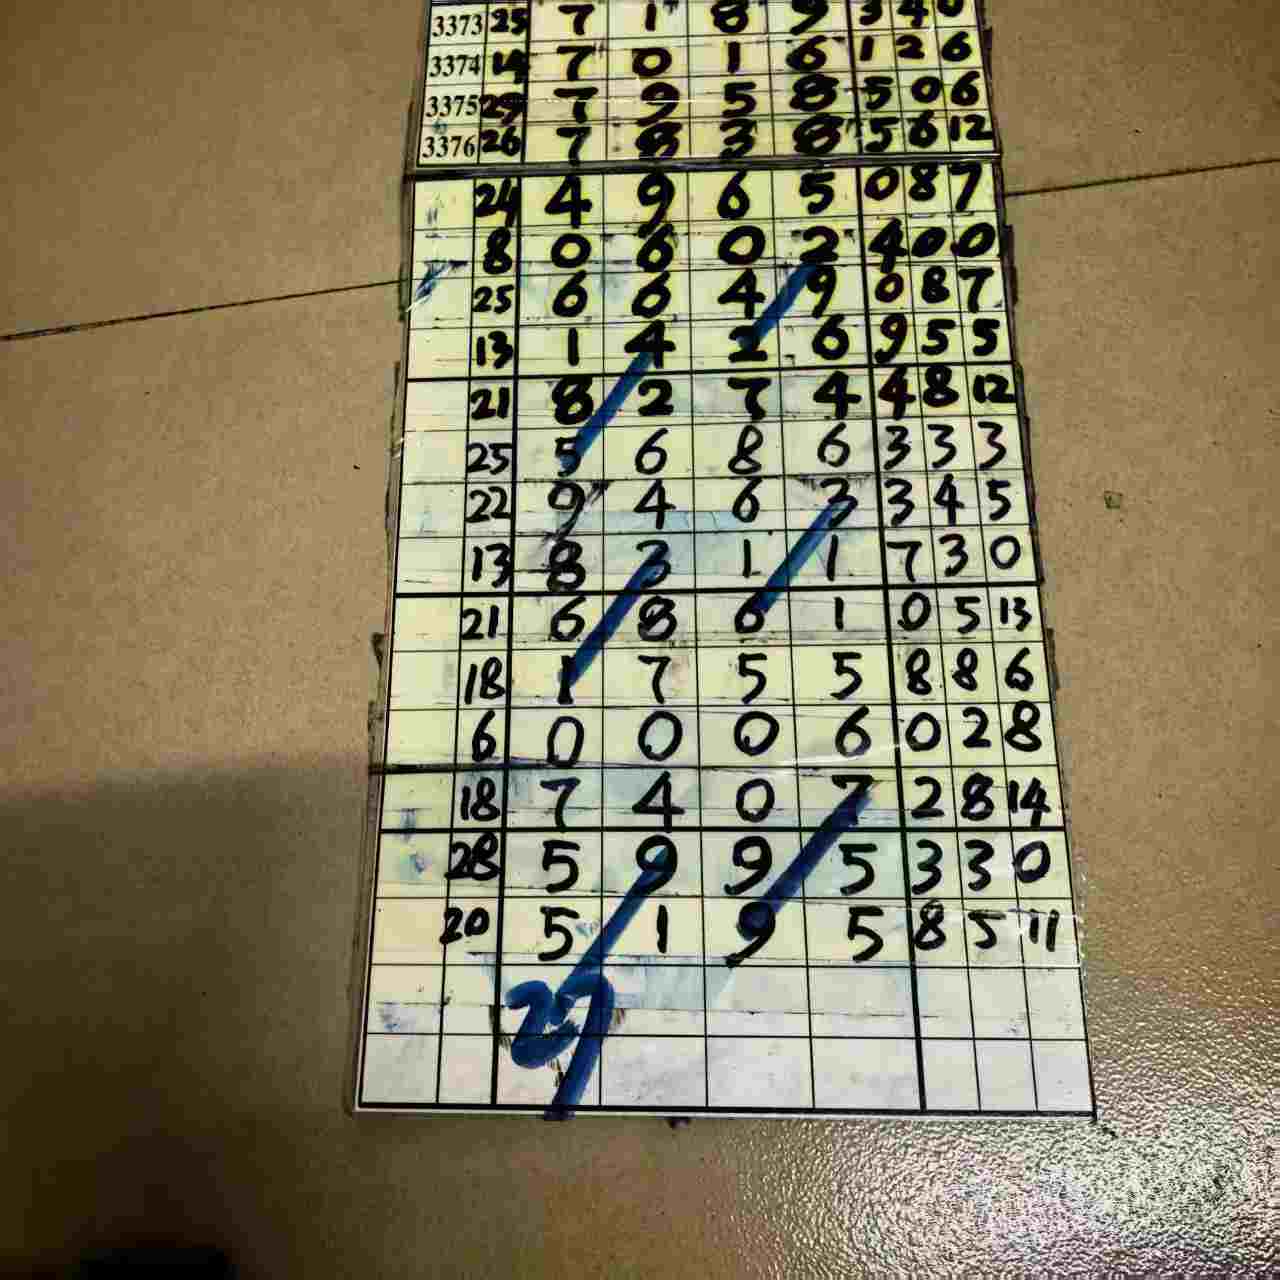 3373 25 7 1 8 9 3 4 0
3374 14 7 0 1 6 1 2 6
3375 29 7 9 5 8 5 0 6
3376 26 7 8 3 8 5 6 12
24 4 9 6 5 0 8 7
8 0 6 0 2 4 0 0
25 6 6 4 9 0 8 7
13 1 4 2 6 9 5 5
21 8 2 7 4 4 8 12
25 5 6 8 6 3 3 3
22 9 4 6 3 3 4 5
13 8 3 1 1 7 3 0
21 6 8 6 1 0 5 13
18 1 7 5 5 8 8 6
6 0 0 0 6 0 2 8
18 7 4 0 7 2 8 14
28 5 9 9 5 3 3 0
20 5 1 9 5 8 5 11
27